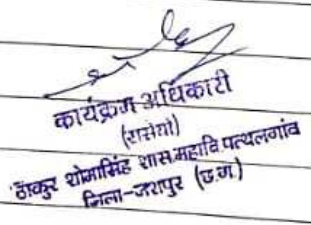 कार्यक्रम अधिकारी
(रासेयो)
ठाकुर शोभासिंह शास.महावि पत्थलगांव
जिला-जशपुर (छ.ग.)